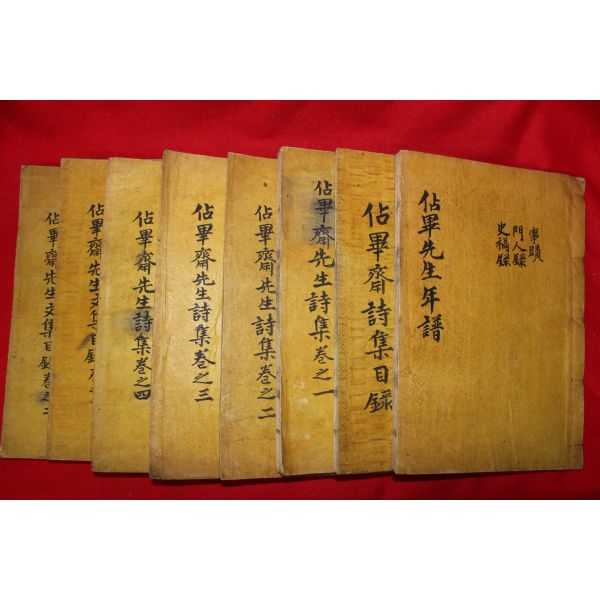 佔畢先生年譜
事蹟
門人錄
史禍錄
佔畢齋詩集目錄
佔畢齋先生詩集卷之一
佔畢齋先生詩集卷之二
佔畢齋先生詩集卷之三
佔畢齋先生詩集卷之四
佔畢齋先生文集目錄卷之
佔畢齋先生文集目錄卷之二